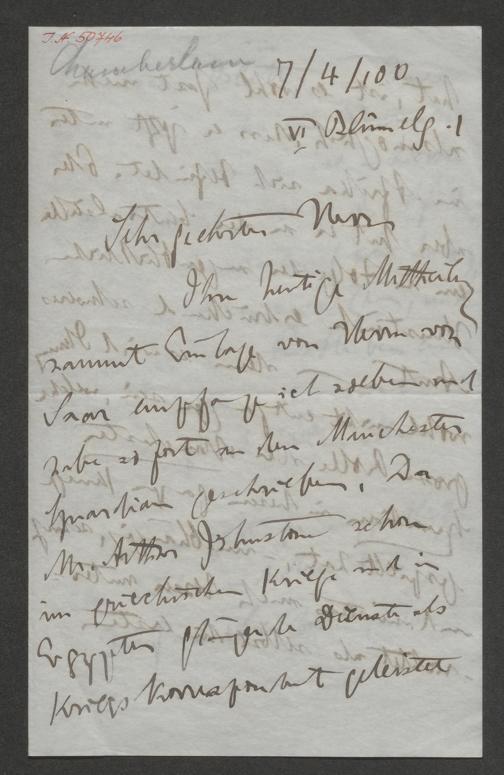 I.N. 50746
Chamberlain
7/4/100
VI Blümelg. 1
Sehr geehrter Herr
Ihre heutige Mittheilg
sammt Einlage von Herrn von
Saar empfange ich soeben und
habe sofort an den Manchester
Guardian geschrieben. Da
Mr. Arthur Johnstone schon
im griechischen Kriege und in
Egypten glänzende Dienste als
Kriegskorrespondent geleistet